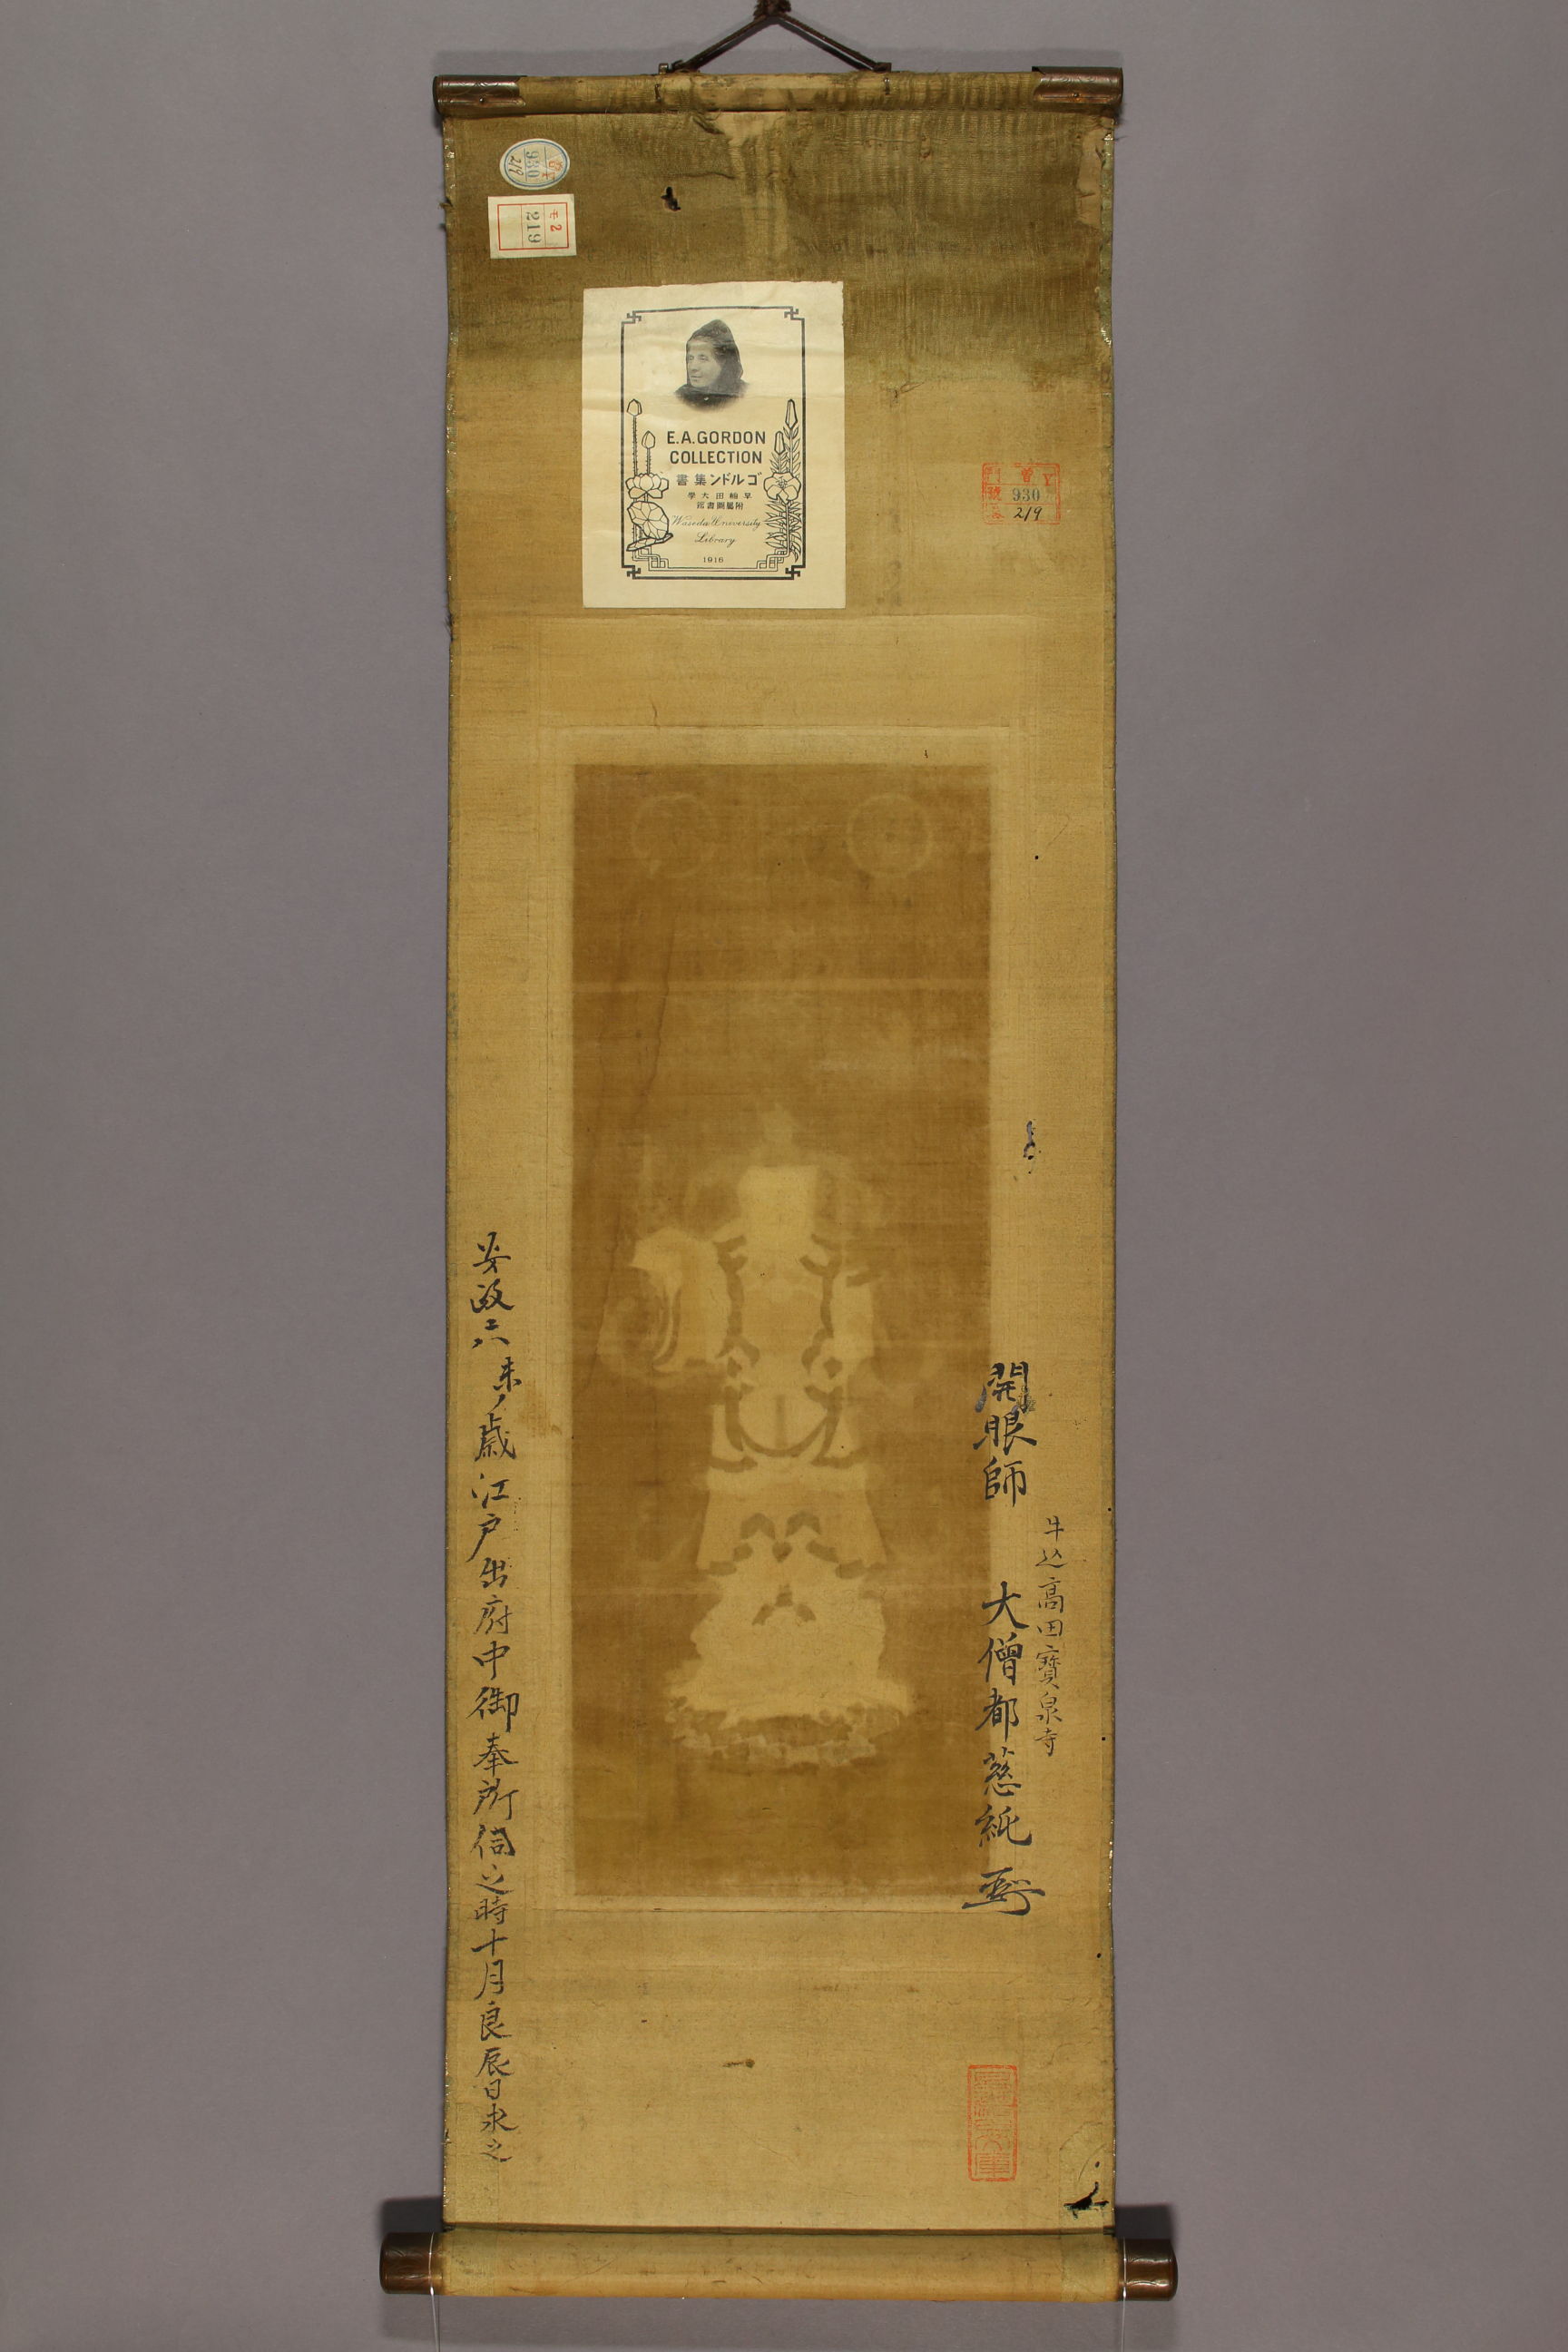 930
219
モ2
219
E.A.GORDON
COLLECTION
書集ンドルゴ
學大田稲早
部書圖屬附
Waseda University
Library
1916
門
號 930
2/9
開眼師
牛込高田寶泉寺
大僧都慈紙
安政六未ノ歳江戸出府中御奉所伺之時十月良辰日求之